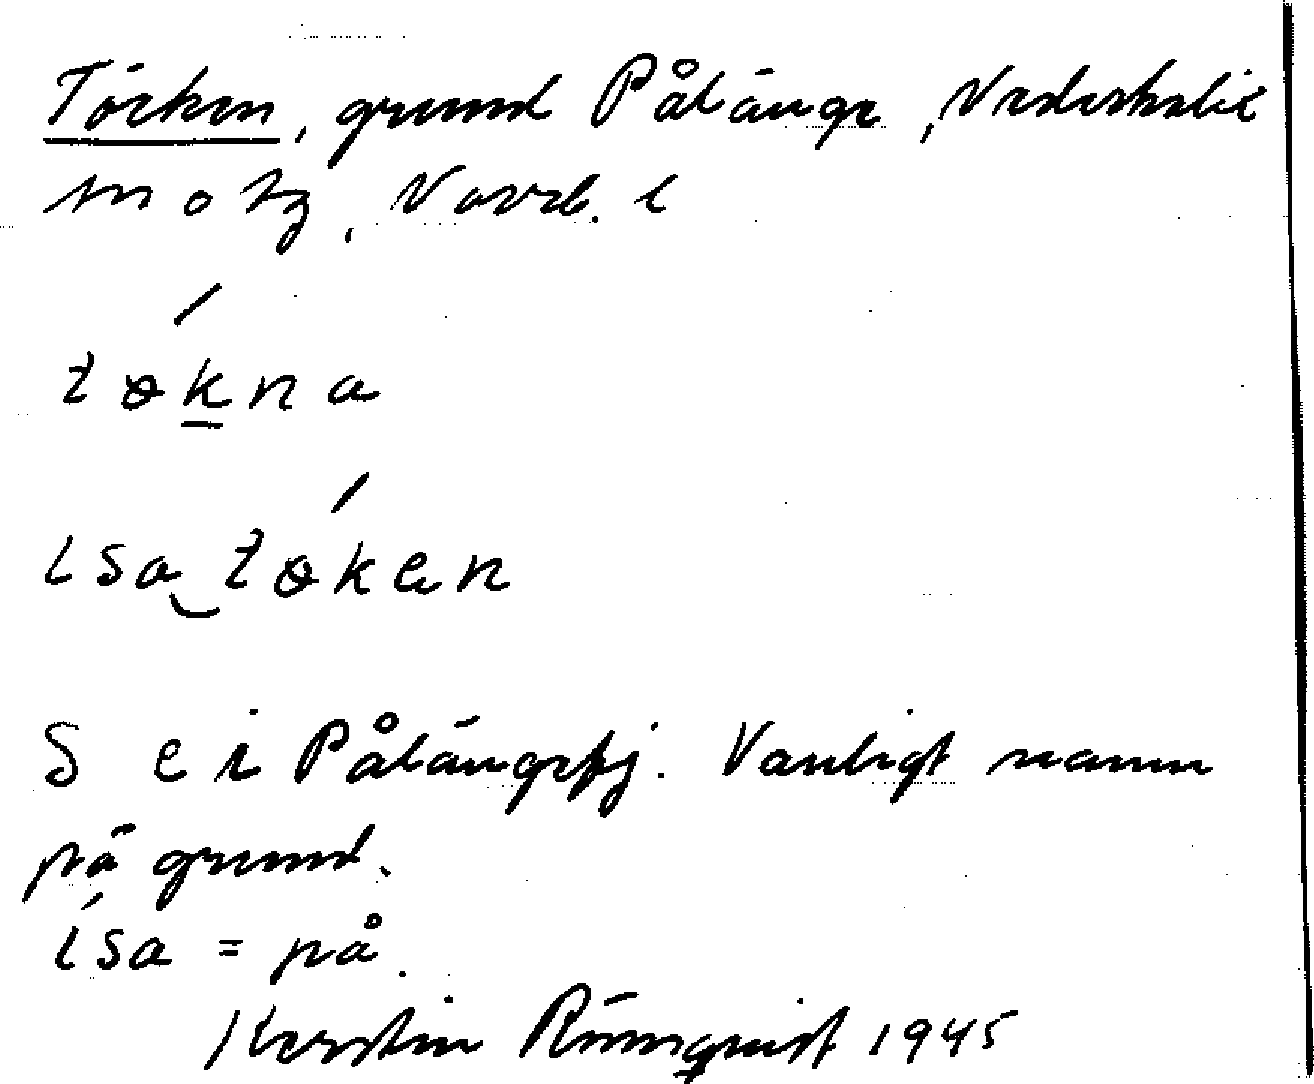 Töcken, grund Pålänge, Nederkalix
sn o tg, Norrb. l
tøkna
isa tøken
S e i Pålängefj. Vanligt namn
på grund.
isa = på.
Kerstin Rönnquist 1945